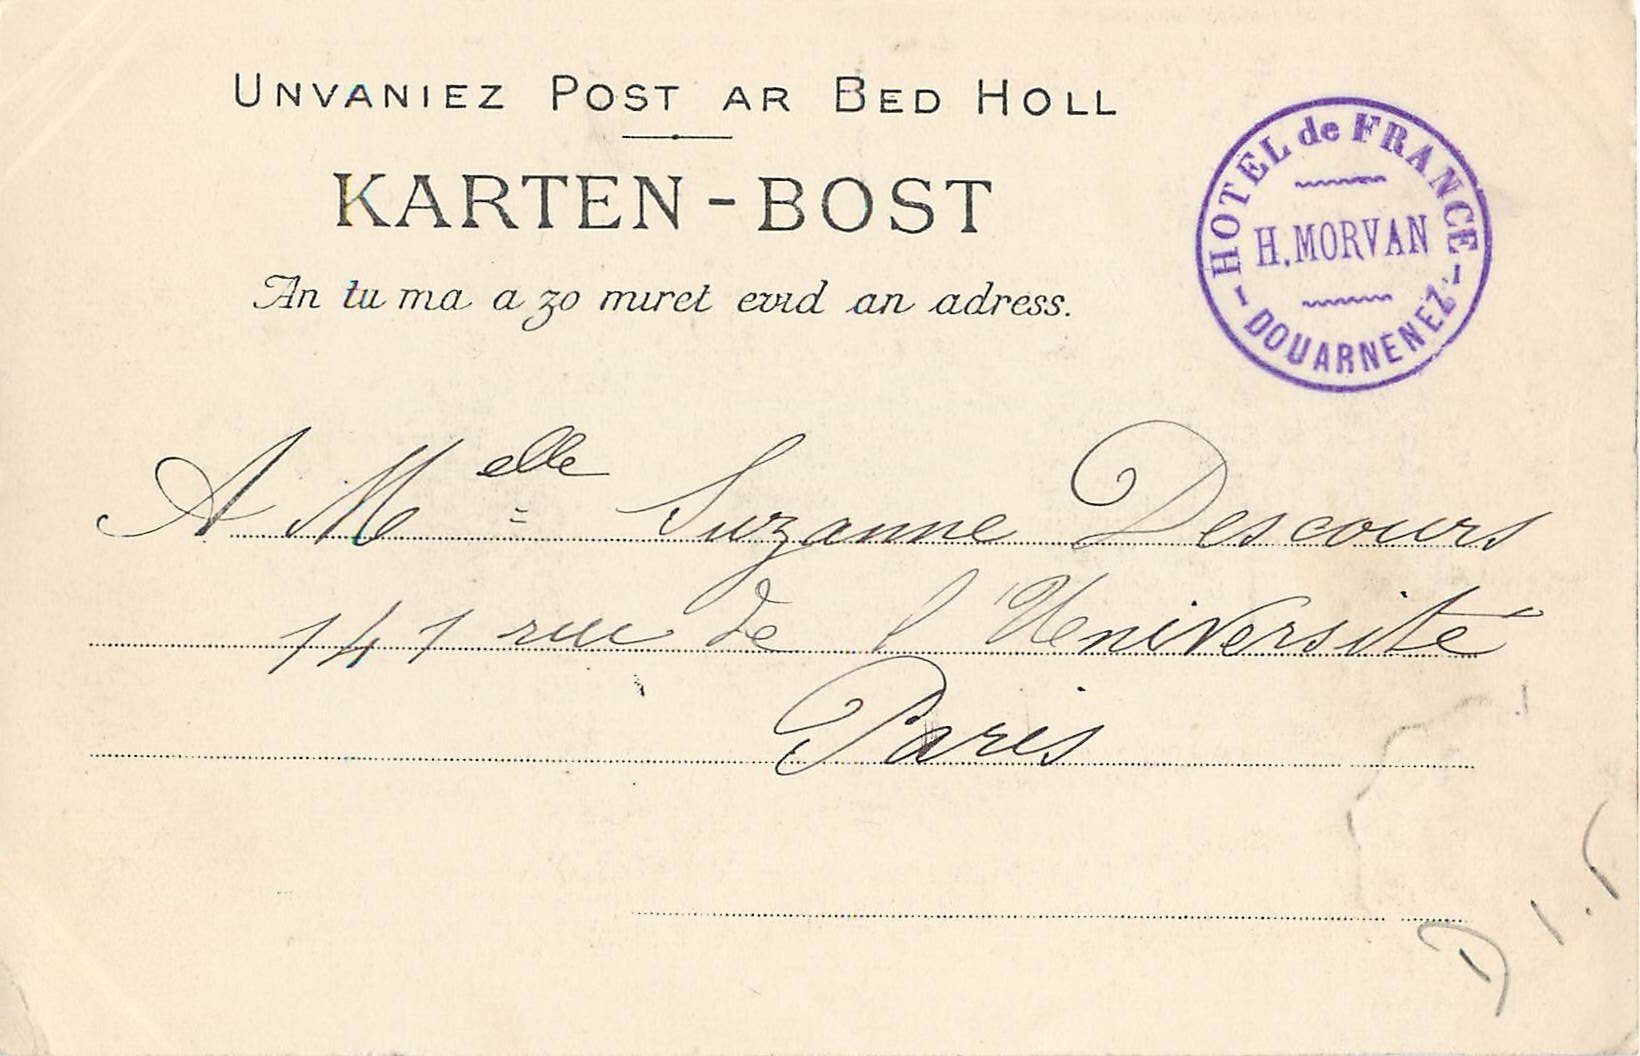 UNVANIEZ POST AR BED HOLL
KARTEN-BOST
An tu ma a zo miret evid an adress.
HOTEL de FRANCE
H. MORVAN
- DOUARNENEZ -
A Melle Suzanne Descours
141 rue de l'Université
Paris